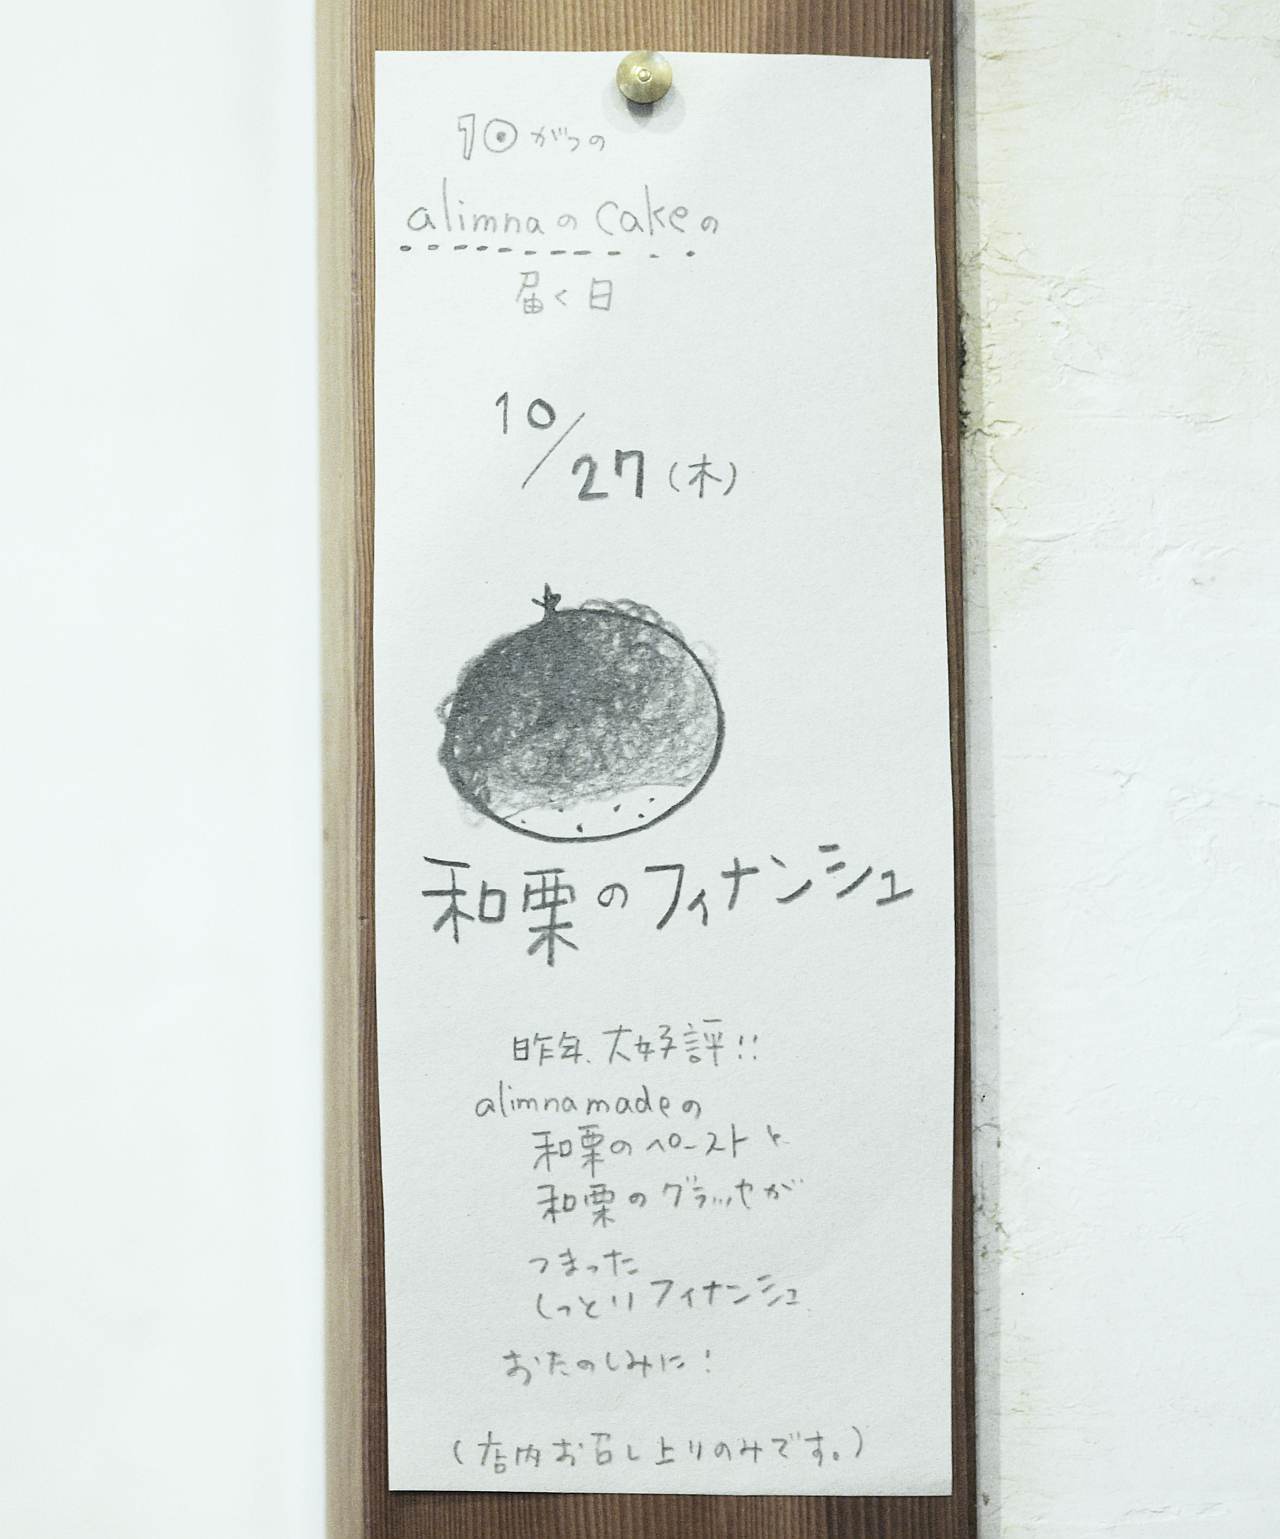 10がつの
alimnaのcakeの
届く日
10/27(木)
和栗のフィナンシュ
昨年、大好評!!
alimnamadeの
和栗のペーストと
和栗のグラッセが
つまった
しっとりフィナンシュ
おたのしみに!
(店内お召し上りのみです。)